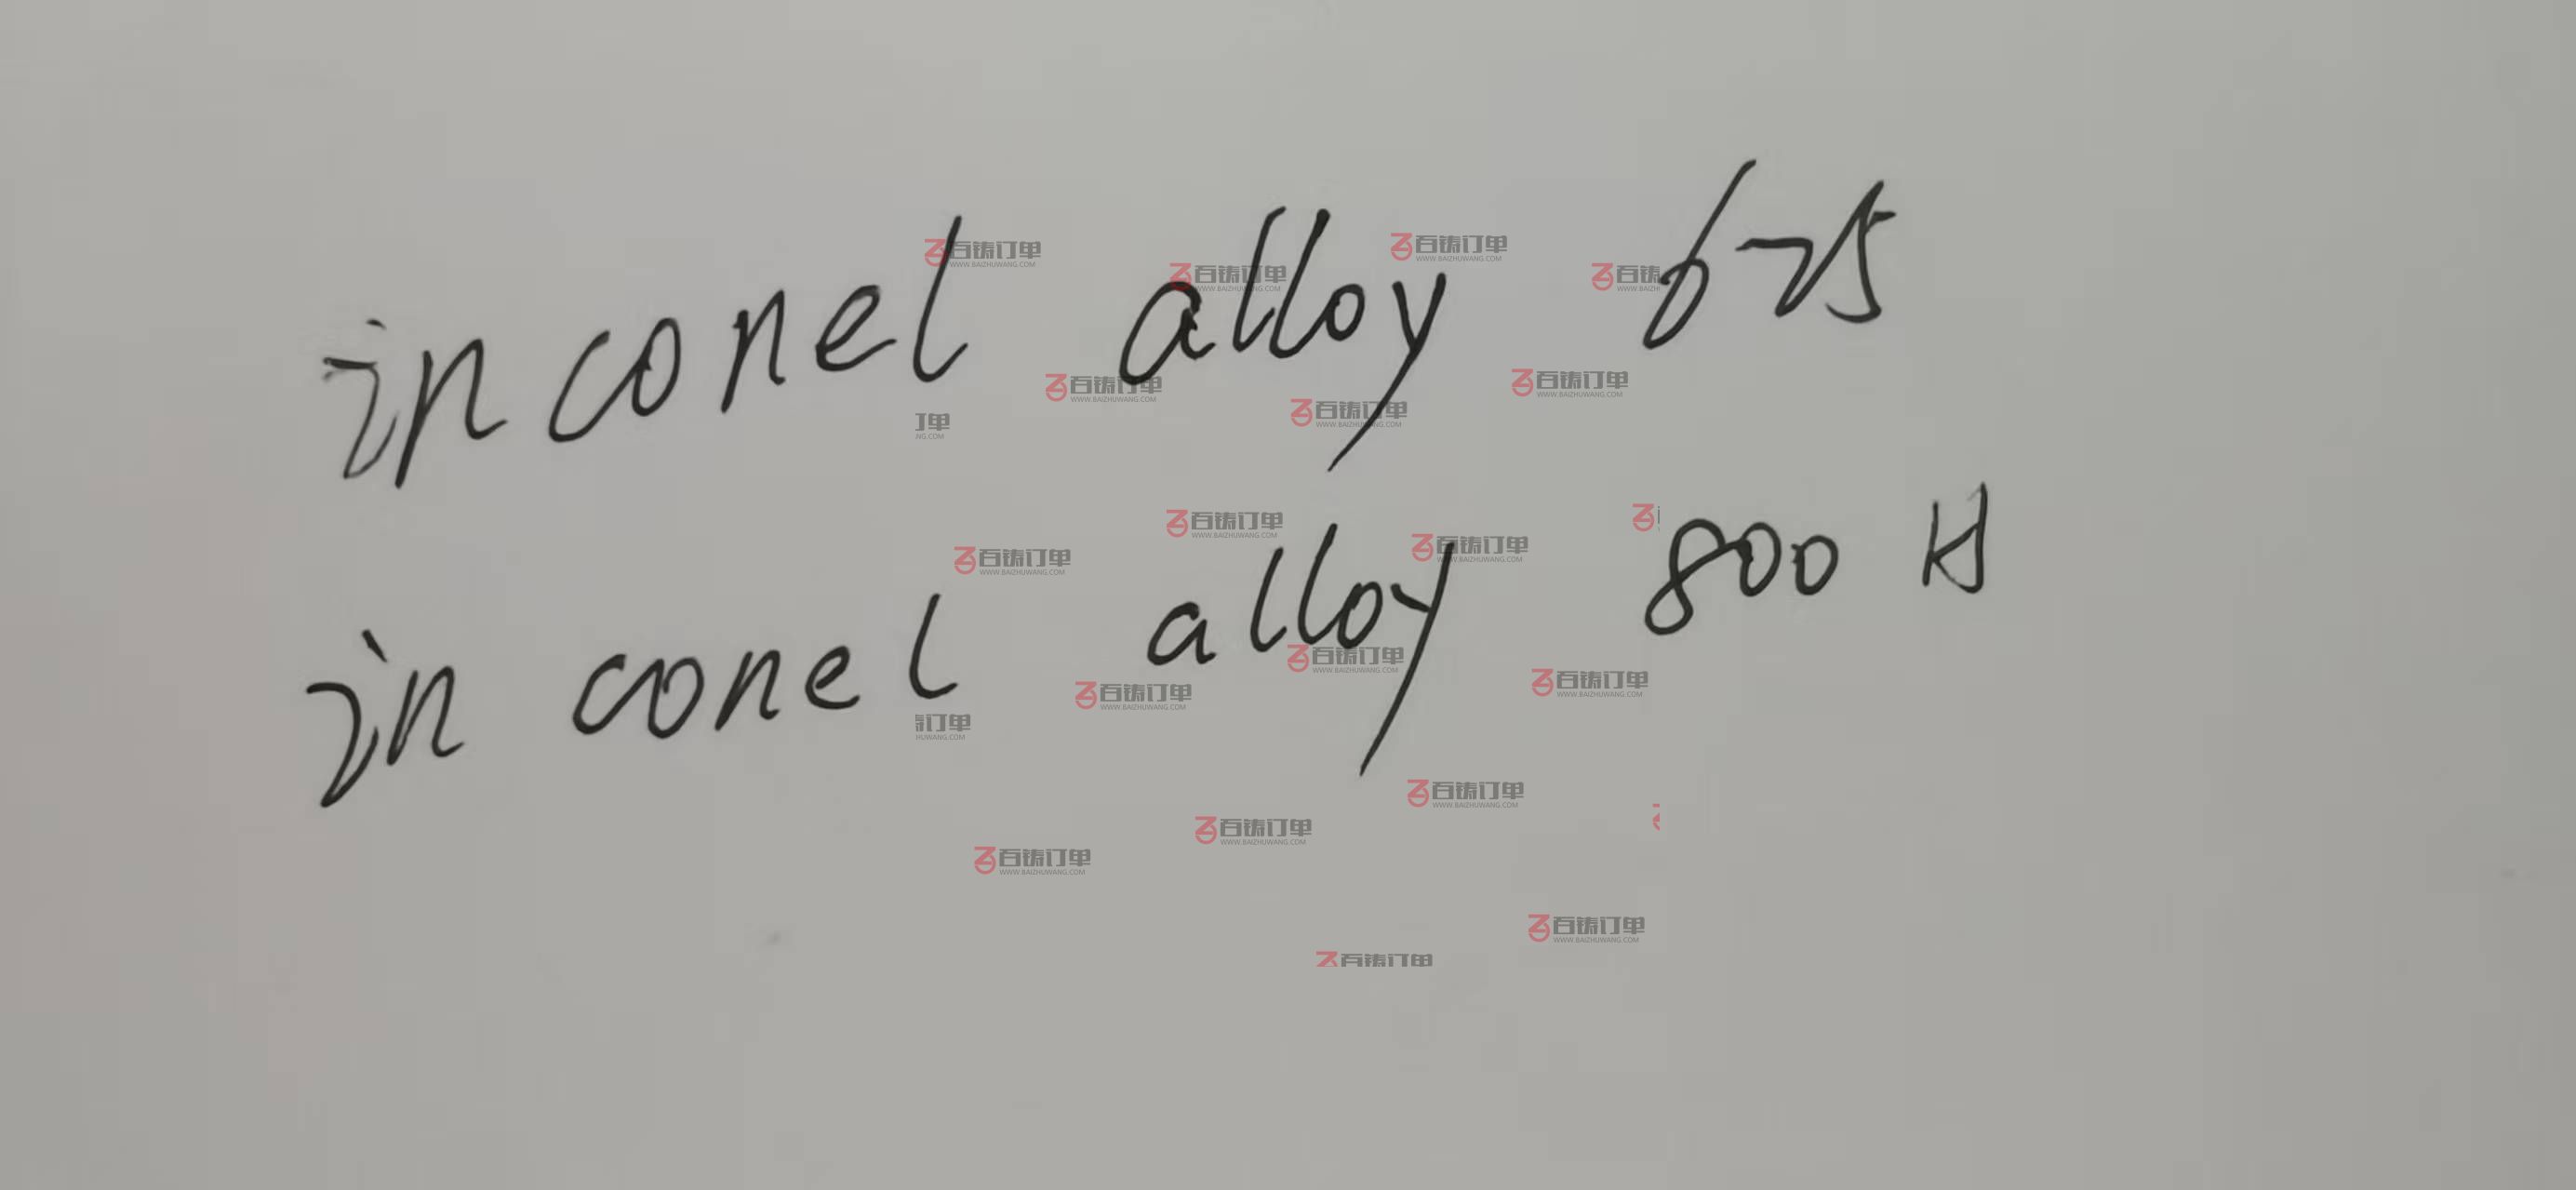 inconel alloy 625
in conel alloy 800 H
百铸订单
WWW.BAIZHUWANG.COM